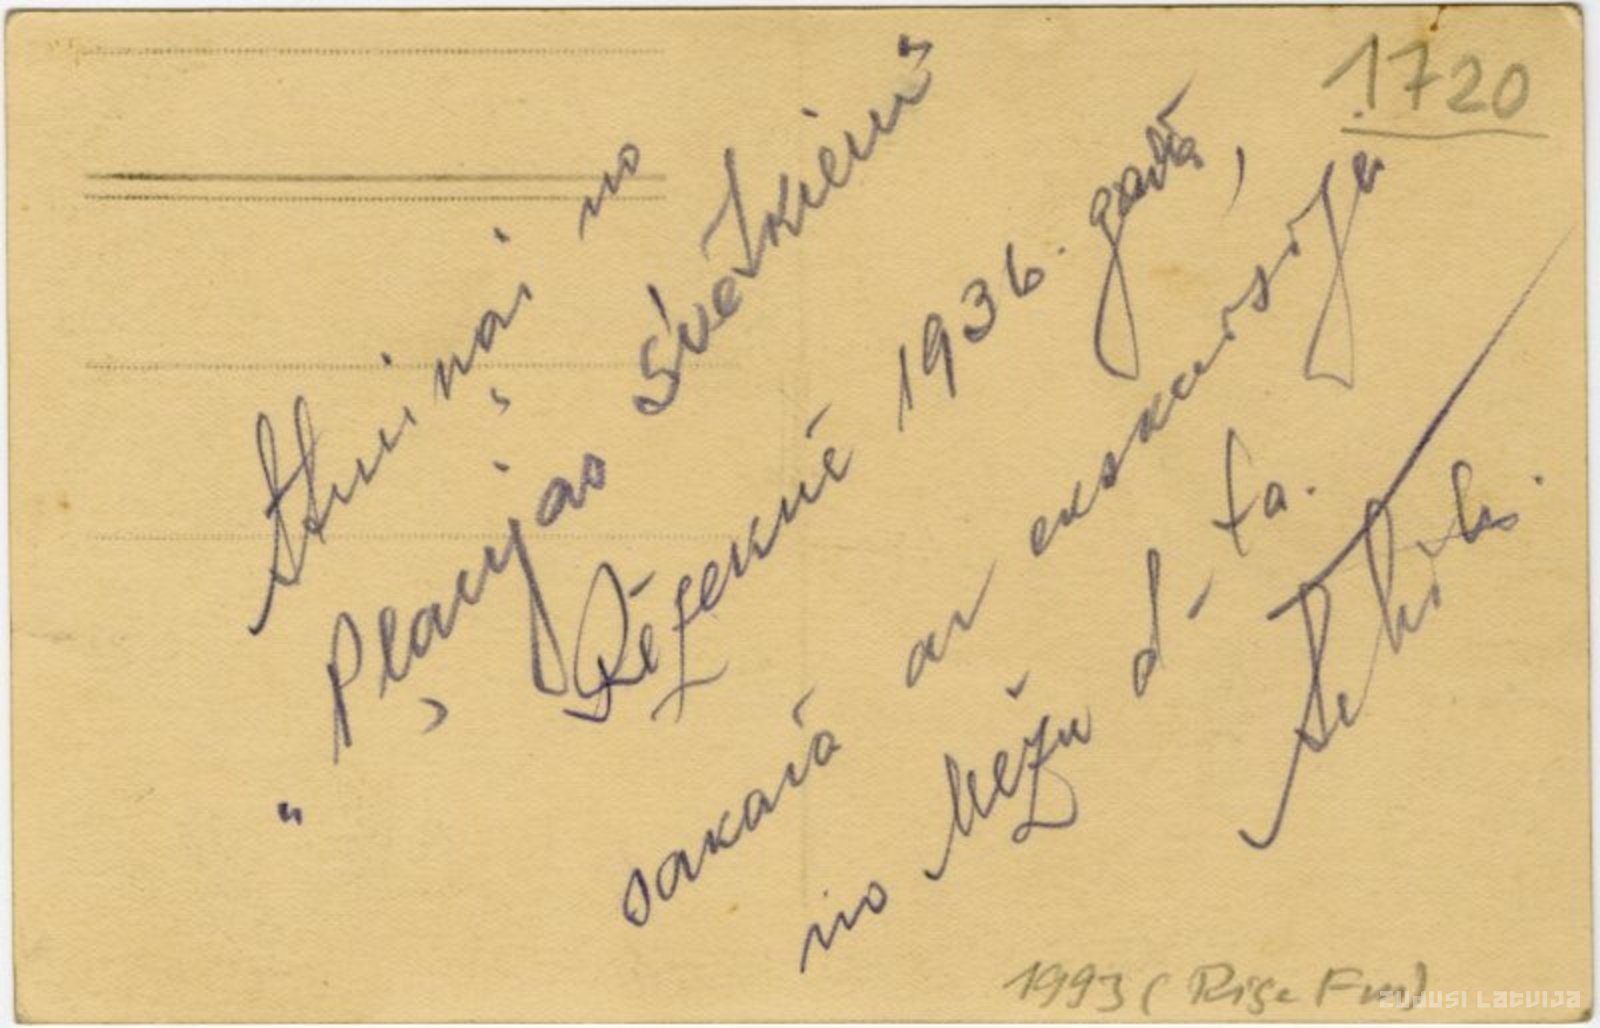 1720
Atmiņai no
"Pļaujas Svētkiem"
Rēzeknē 1936. gadā,
sakarā ar ekskursiju
no Mežu d-ta.
1993 (Rīga
ZUDUSI LATVIJA